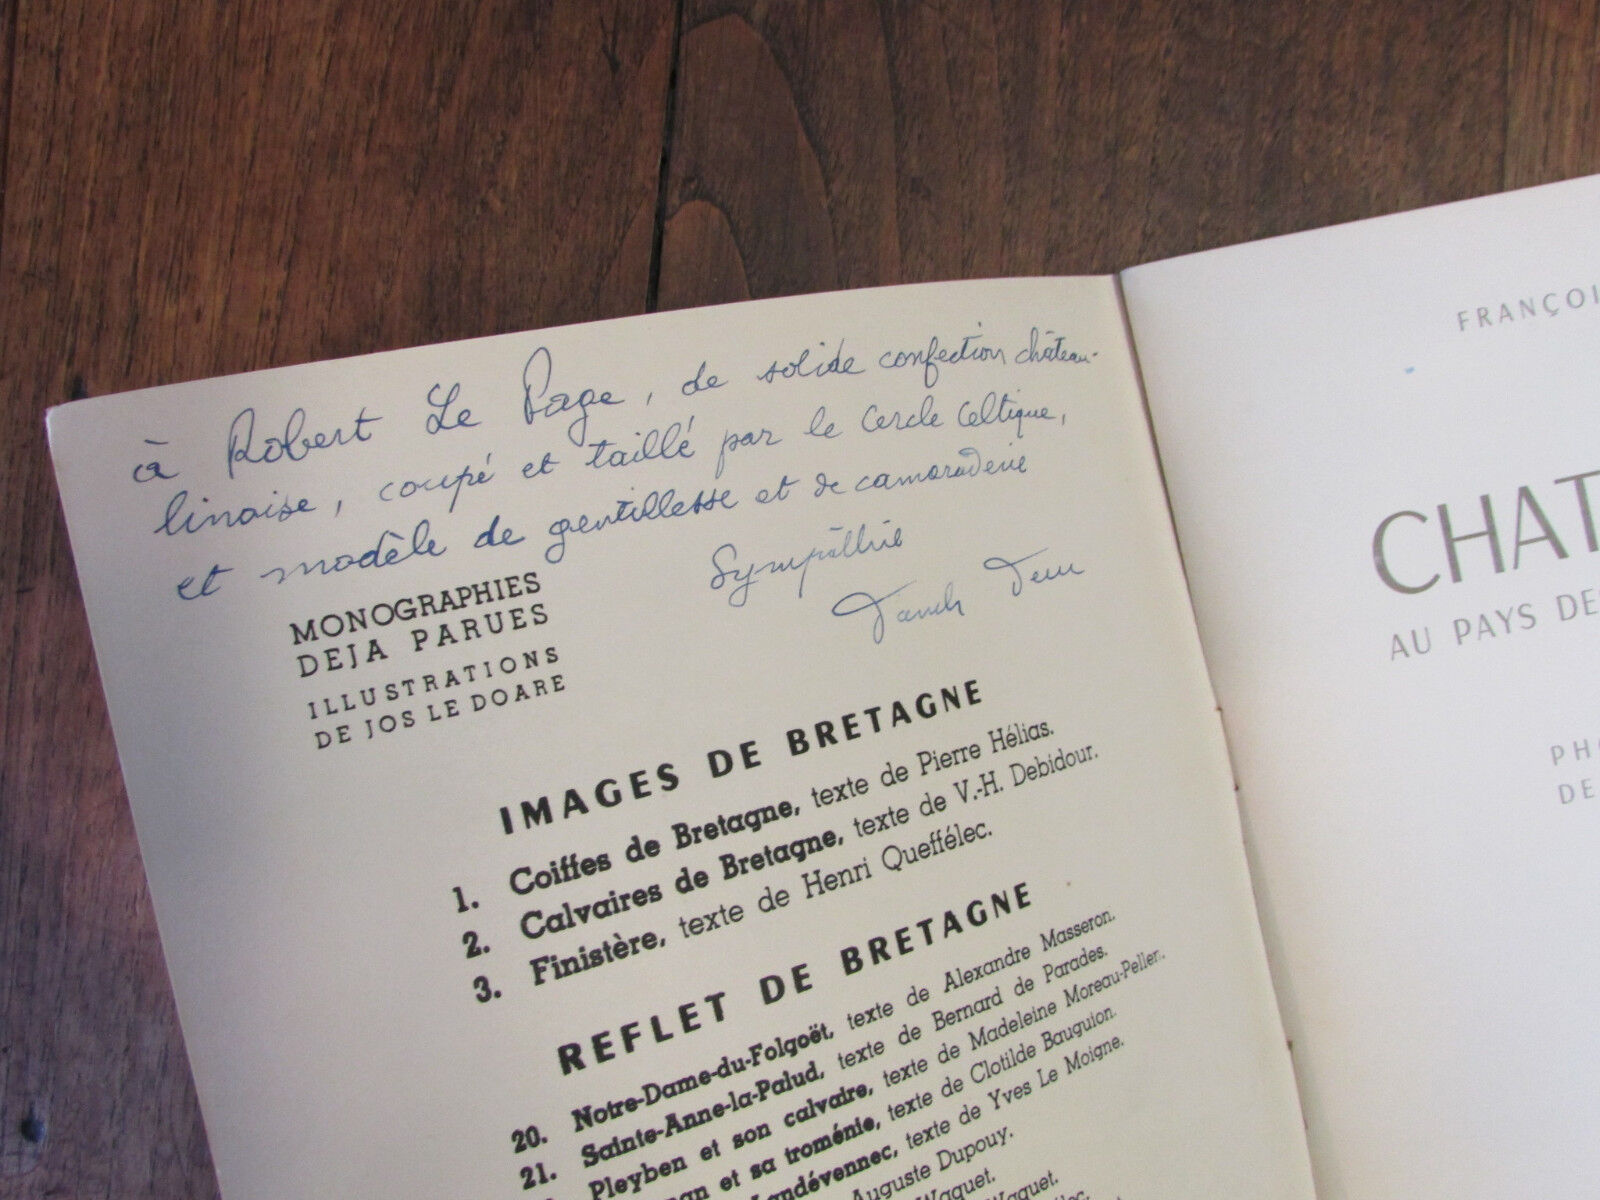 à Robert Le Page, de solide confection château-
linoise, coupé et taillé par le Cercle Celtique,
et modèle de gentillesse et de camaraderie
Sympathie
MONOGRAPHIES
DEJA PARUES
ILLUSTRATIONS
DE JOS LE DOARE
IMAGES DE BRETAGNE
1. Coiffes de Bretagne, texte de Pierre Hélias.
2. Calvaires de Bretagne, texte de V.-H. Debidour.
3. Finistère, texte de Henri Queffélec.
REFLET DE BRETAGNE
20. Notre-Dame-du-Folgoët, texte de Alexandre Masseron.
21. Sainte-Anne-la-Palud, texte de Bernard de Parades.
Pleyben et son calvaire, texte de Madeleine Moreau-Peller.
nan et sa troménie, texte de Clotilde Bauguion.
andévennec, texte de Yves Le Moigne.
Auguste Dupouy.
Waquet.
Waquet.
FRANÇOI
CHAT
AU PAYS DE
PH
DE